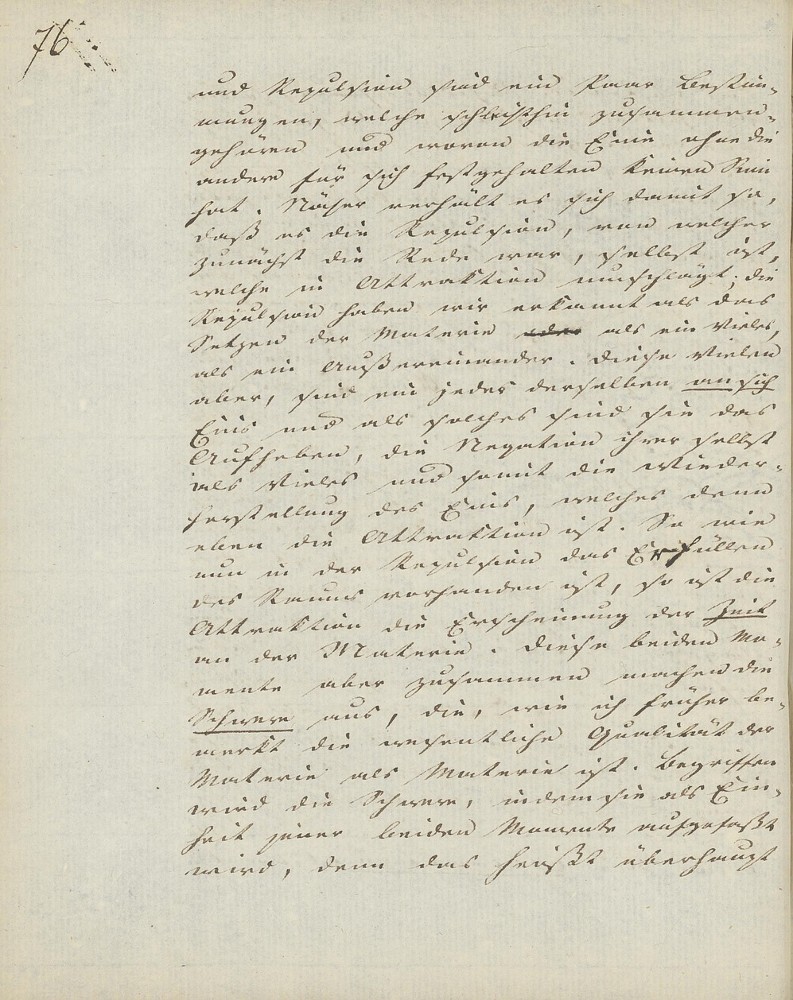 76
und Repulsion sind ein Paar Bestim-
mungen, welche schlechthin zusammen-
gehören und wovon die Eine ohne die
andere für sich festgehalten keinen Sinn
hat. Näher verhält es sich damit so,
daß es die Repulsion, von welcher
zunächst die Rede war, selbst ist,
welche in Attraktion umschlägt; die
Repulsion haben wir erkannt als das
Setzen der Materie oder als ein Vieles,
als ein Außereinander. Diese Vielen
aber, sind ein jedes derselben an sich
Eins und als solches sind sie das
Aufheben, die Negation ihrer selbst
als Vieles und somit die Wieder-
herstellung des Eins, welches denn
eben die Attraktion ist. So wie
nun in der Repulsion das Erfüllen
des Raums vorhanden ist, so ist die
Attraktion die Erscheinung der Zeit
an der Materie. Diese beiden Mo-
mente aber zusammen machen die
Schwere aus, die, wie ich früher be-
merkt die wesentliche Qualität der
Materie als Materie ist. Begriffen
wird die Schwere, indem sie als Ein-
heit jener beiden Momente aufgefaßt
wird, denn das heißt überhaupt